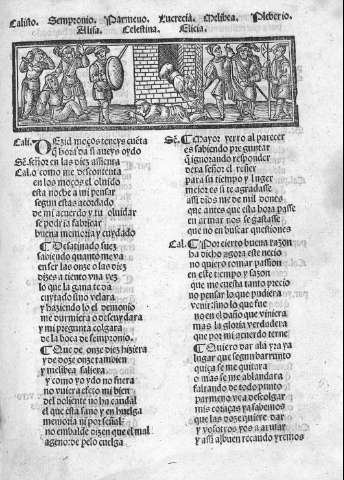 Calisto. Sempronio. Parmeno. Lucrecia. Melibea. Pleberio.
Alisa. Celestina. Elicia.
Cali. Dezid moços teneys cuēta
q̄ hora da si aueys oydo
Sē. Señor en las diez assienta
Cal. o como me descontenta
en los moços el oluido
esta noche a mi pensar
segun estas acordado
de mi acuerdo y tu oluidar
se podria fabricar
buena memoria y cuydado
Desatinado pues
sabiendo quanto me va
en ser las onze o las diez
dizes a tiento vna vez
lo que la gana te da
cuytado si no velara
y haziendo lo el demonio
me durmiera o descuydara
y mi pregunta colgara
de la boca de sempronio.
Que de onze diez hiziera
y de doze onze tambien
y melibea saliera
y como yo ydo no fuera
no vuiera efecto mi bien
del doliente no ha caudal
el que esta sano y en huelga
memoria ni por señal
no embalde dizen que el mal
ageno: de pelo cuelga
Sē. Mayor yerro al parecer
es sabiendo preguntar
q̄ ignorando responder
deua señor el reñir
para su tiempo y lugar
mejor es si te agradasse
assi dios me de mil bienes
que antes que esta hora passe
en armar nos se gastasse
que no en buscar questiones
Cal. Por cierto buena razon
ha dicho agora este necio
no quiero tomar passion
en este tiempo y sazon
que me cuesta tanto precio
no pensar lo que pudiera
venir: sino lo que fue
no en el daño que viniera
mas la gloria verdadera
que por mi acuerdo terne
Quiero dar a la yra ya
lugar que segun barrunto
quiça se me quitara
o mas se me ablandara
faltando de todo punto
parmeno ve a descolgar
mis coraças ya sabemos
que las doze quiere dar
y vosotros vos a armar
y assi a buen recaudo yremos